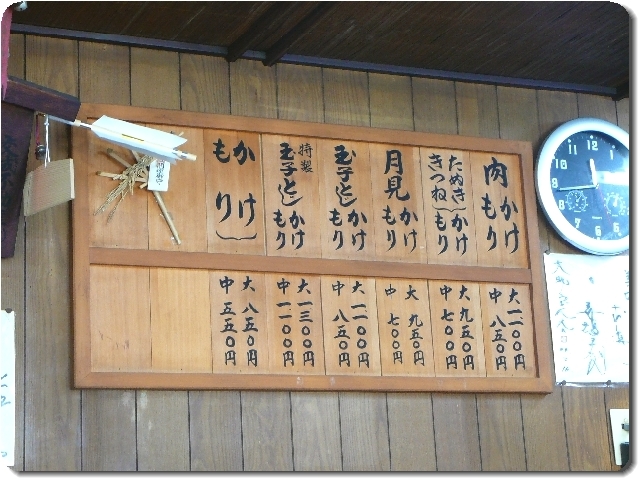 肉 かけ もり
大 一一〇〇円
中 八五〇円
たぬき きつね かけ もり
大 九五〇円
中 七〇〇円
月見 かけ もり
大 九五〇円
中 七〇〇円
玉子とじ かけ もり
大 一一〇〇円
中 八五〇円
特製 玉子とじ かけ もり
大 一三〇〇円
中 一一〇〇円
かけ もり
大 八五〇円
中 五五〇円
12
11
10
9
8
7
6
5